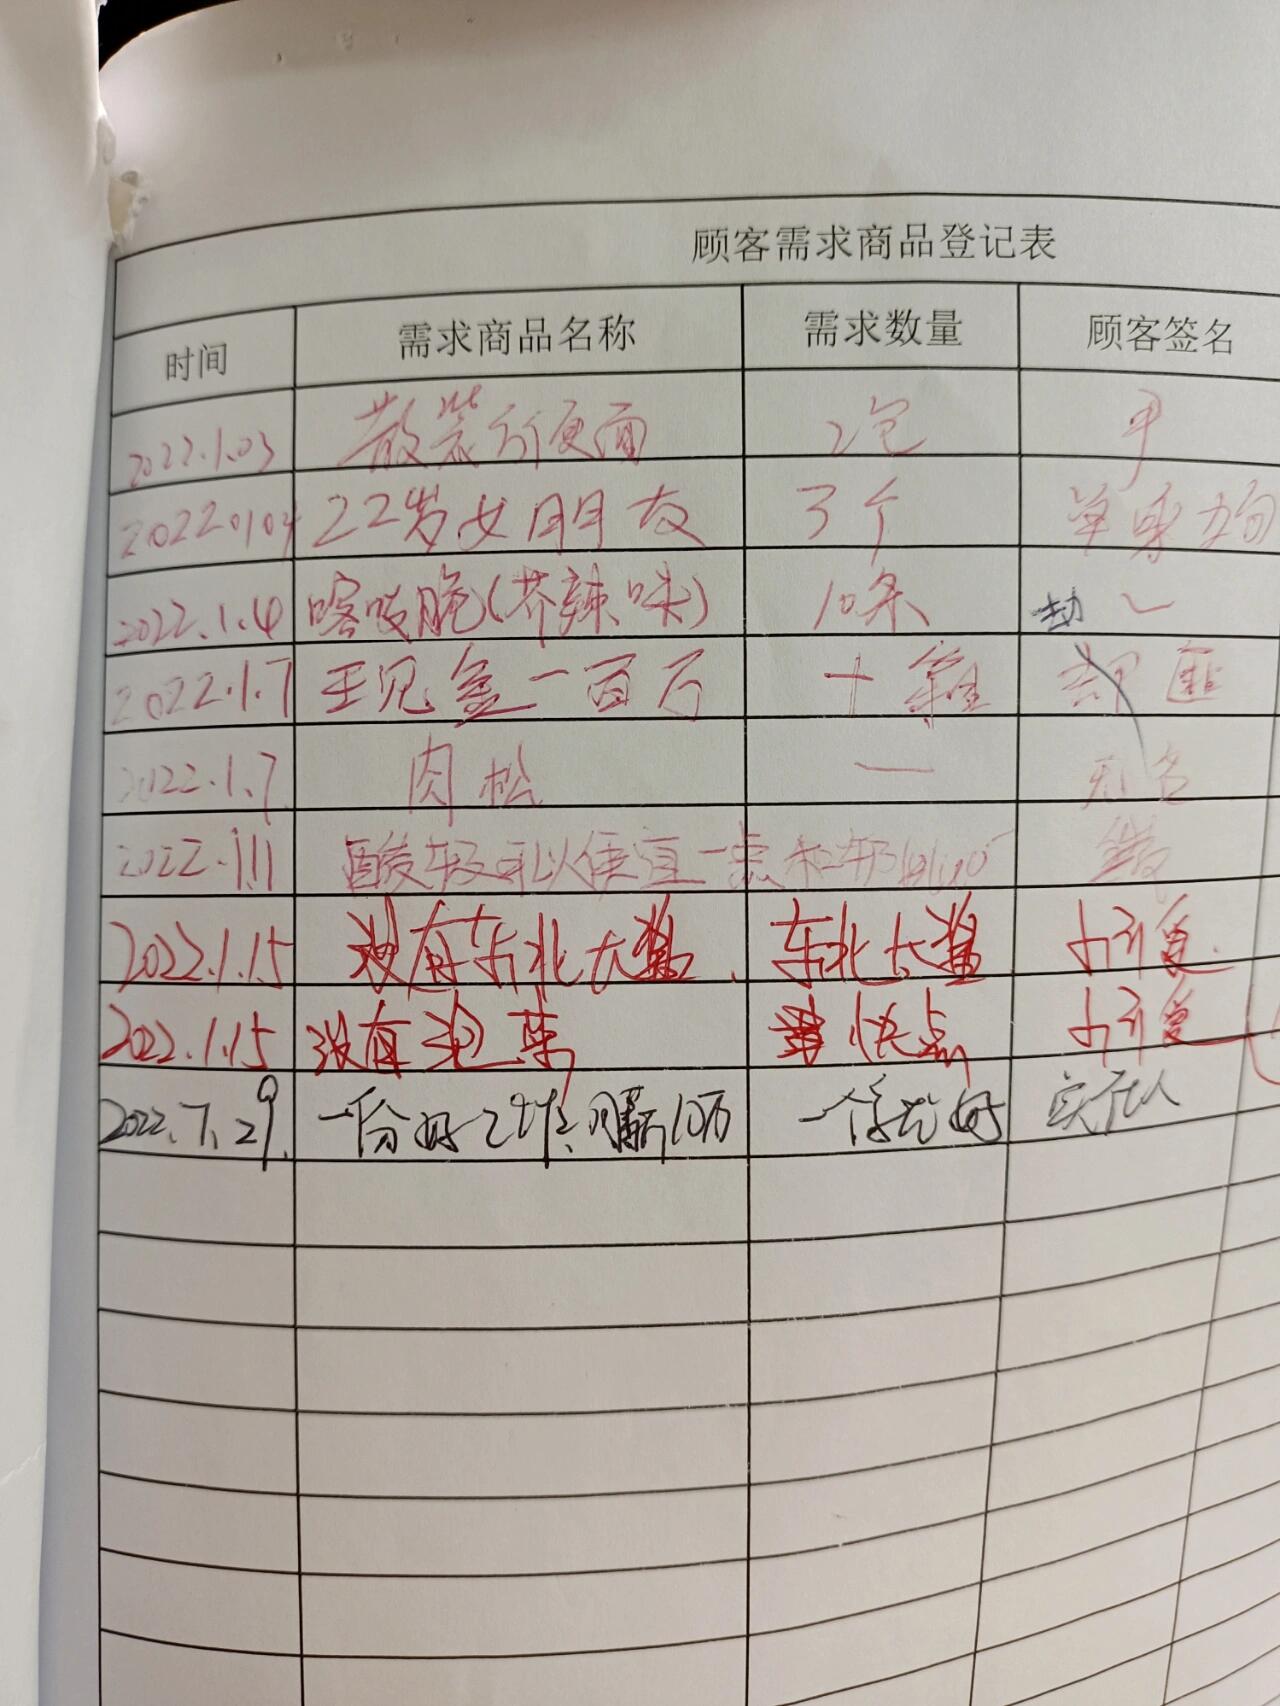 顾客需求商品登记表
时间 需求商品名称 需求数量 顾客签名
2022.1.03 散装方便面 2包
2022.01.04 22岁女朋友 3个 单身狗
2022.1.4 喀吱脆(芥辣味) 10条 劫
2022.1.7 王见金一百万 十箱 劫匪
2022.1.7 肉松 一 无名
2022.1.11 酸奶可以便宜一点
2022.1.15 没有东北大 东北大
2022.1.15 没有泡 快点
2022.7.29 一份好工作、月薪10万 一个就好